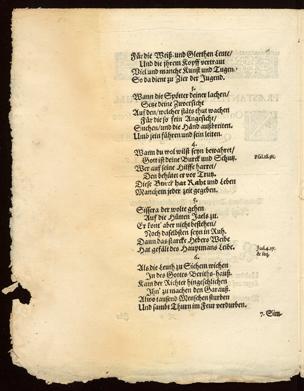 Für die Weiß- und Glerthen Leute/
Und die jhrem Kopff vertraut
Viel und manche Kunst und Tugen.
So da dient zu Zier der Jugend.
3.
Wann die Spötter deiner lachen/
Setze deine Zuversicht
Auf den/ welcher stäts that wachen
Für die so sein Angesicht/
Suchen/ und die Händ außbreiten,
Und jein führen und sein leiten.
4.
Wann du wol wilst seyn bewahret/
Gott ist deine Burck und Schutz,
Psal.18.36.
Wer auf seine Hilffe harret/
Den behütet er vor Trutz.
Diese Burck hat Raht und Leben
Manchem jeder zeit gegeben.
5.
Sissera der wolte gehen
Auf die Hütten Jaels zu.
Er kont' aber nicht bestehen/
Noch daselbsten seyn in Ruh.
Dann das starcke Hebers Weibe
Jud.4.17.
Hat gefält des Hauptmans Leibe.
& seq.
6.
Als die Leuth zu Sichem wichen
In des Gottes Beriths-hauß.
Kam der Richter hingeschlichen
Jhn' zu machen den Garauß.
Alwo tausend Menschen sturben
Und sambt Thurn im Feur verdurben.
7. Sim-